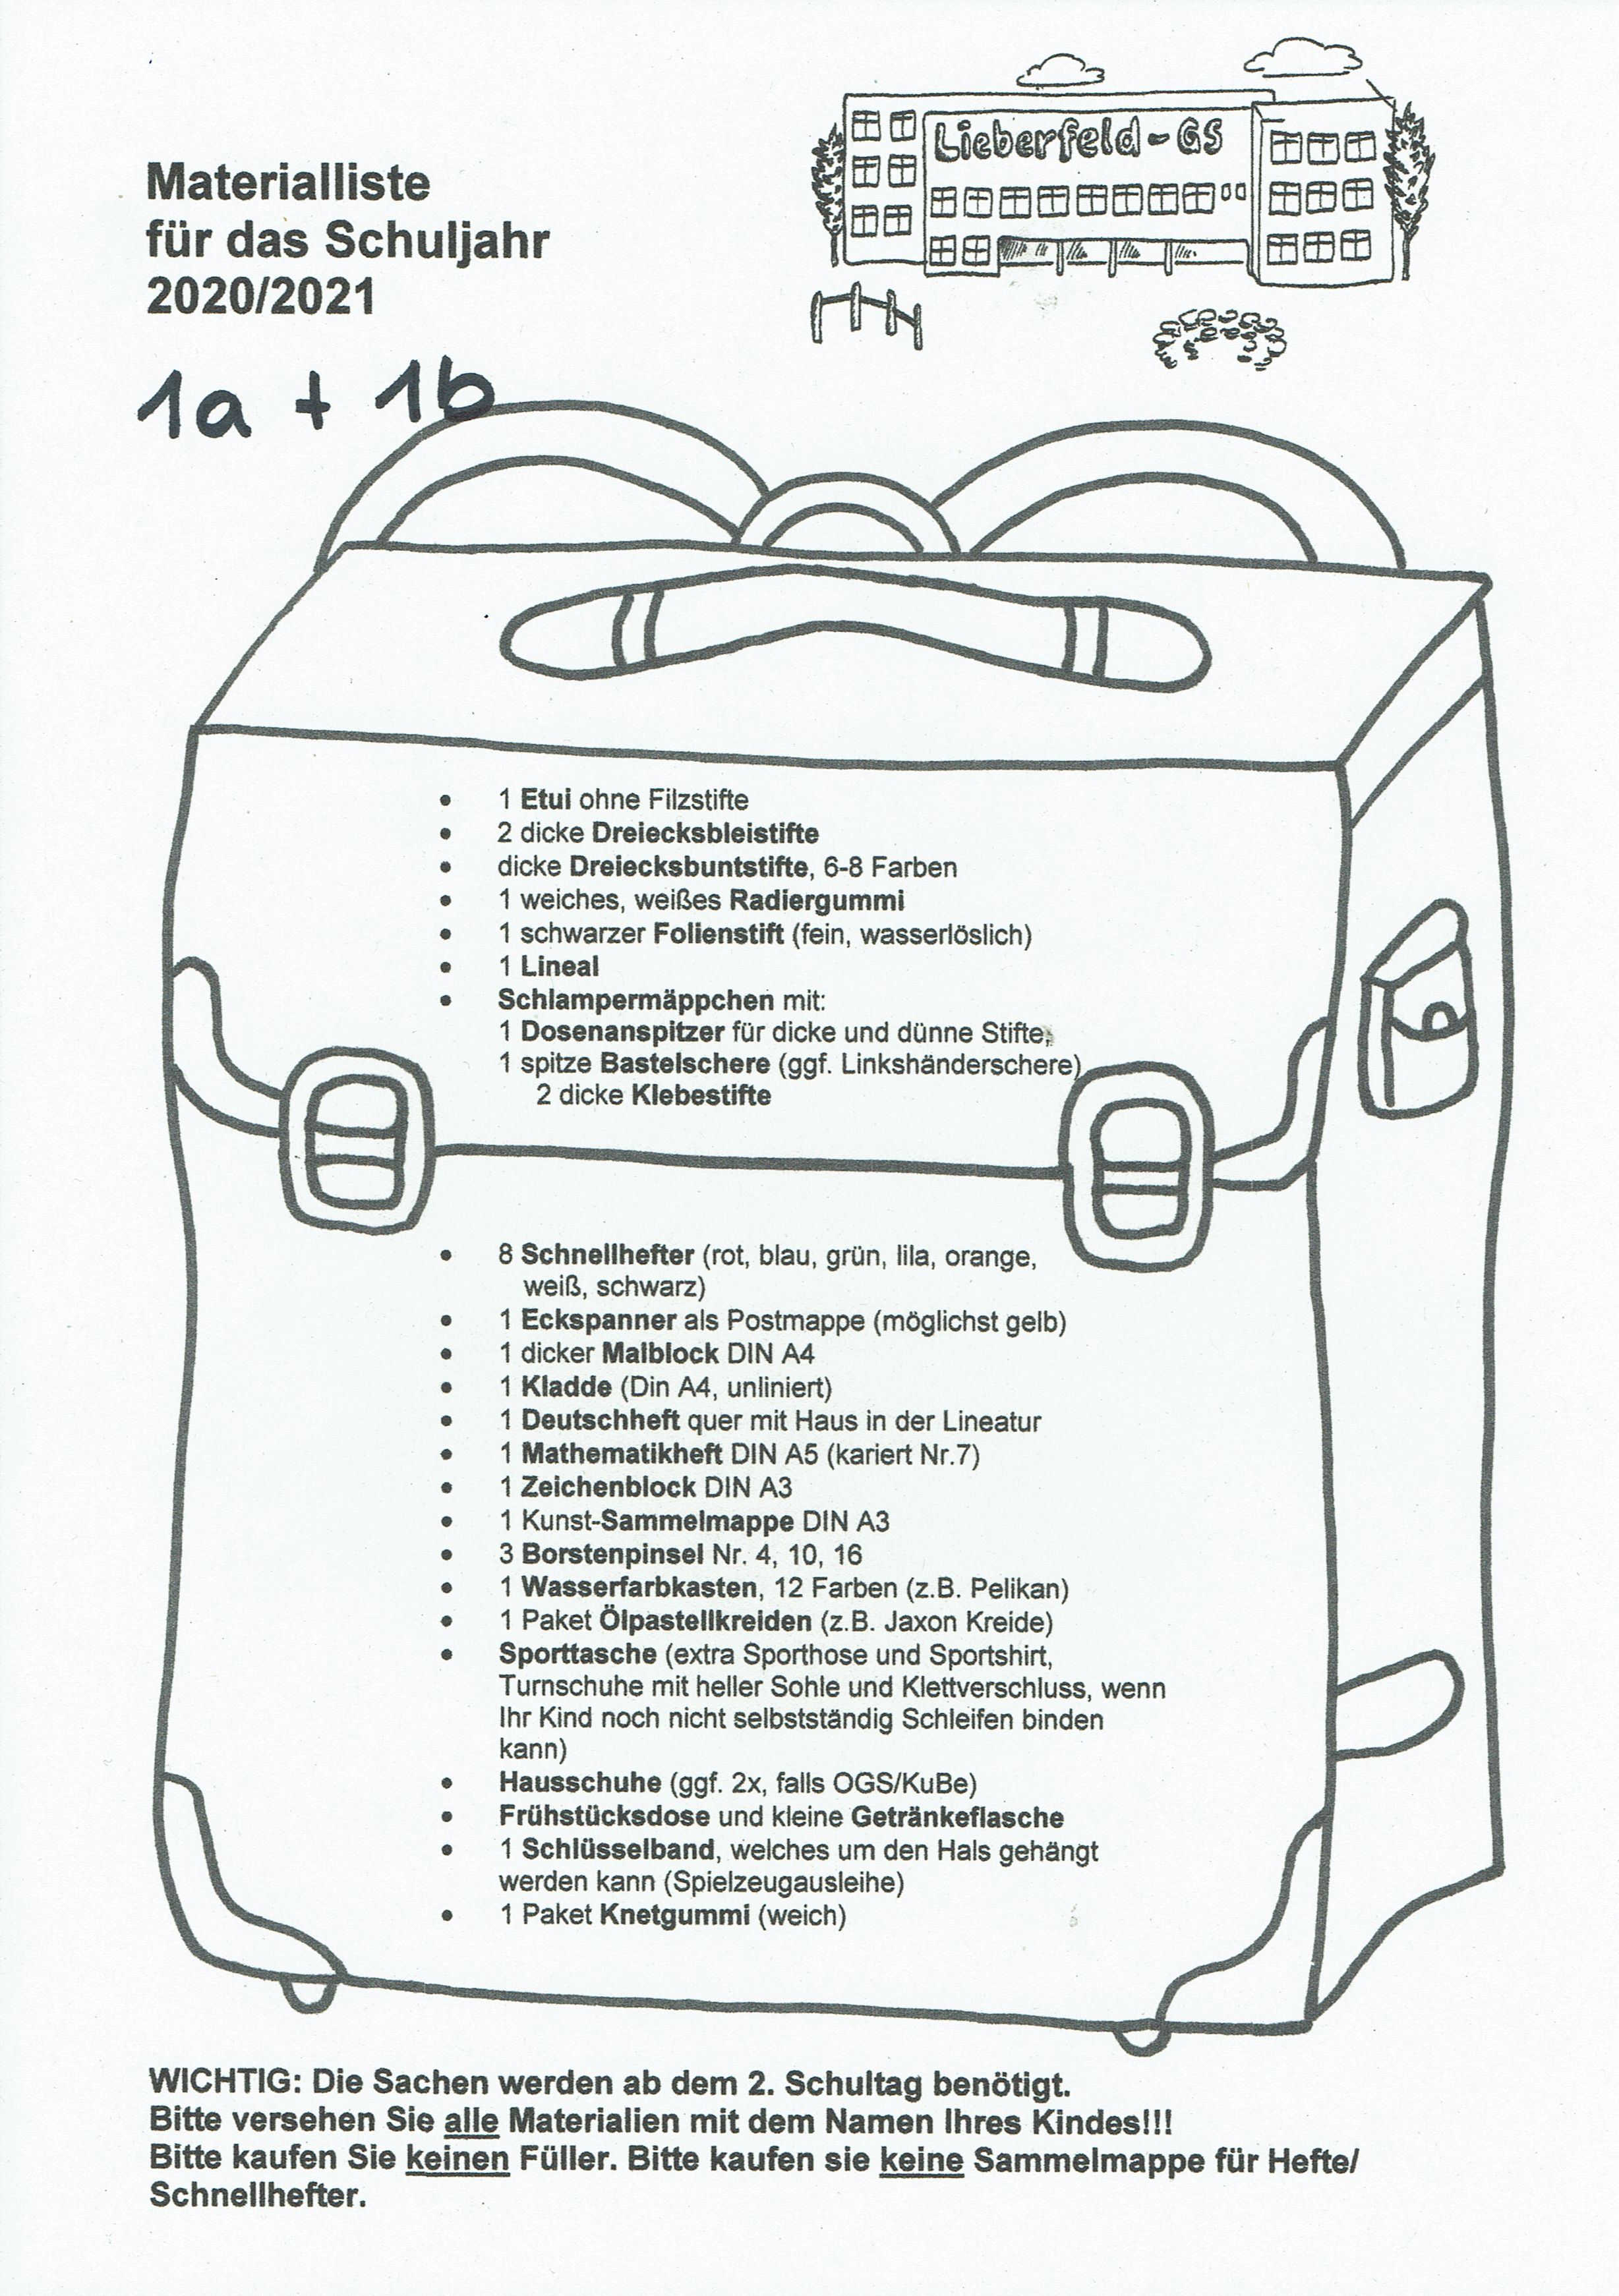 Lieberfeld-GS
Materialliste
für das Schuljahr
2020/2021
1a + 1b
• 1 Etui ohne Filzstifte
• 2 dicke Dreiecksbleistifte
• dicke Dreiecksbuntstifte, 6-8 Farben
• 1 weiches, weißes Radiergummi
• 1 schwarzer Folienstift (fein, wasserlöslich)
• 1 Lineal
• Schlampermäppchen mit:
1 Dosenanspitzer für dicke und dünne Stifte,
1 spitze Bastelschere (ggf. Linkshänderschere)
2 dicke Klebestifte
• 8 Schnellhefter (rot, blau, grün, lila, orange,
weiß, schwarz)
• 1 Eckspanner als Postmappe (möglichst gelb)
• 1 dicker Malblock DIN A4
• 1 Kladde (Din A4, unliniert)
• 1 Deutschheft quer mit Haus in der Lineatur
• 1 Mathematikheft DIN A5 (kariert Nr.7)
• 1 Zeichenblock DIN A3
• 1 Kunst-Sammelmappe DIN A3
• 3 Borstenpinsel Nr. 4, 10, 16
• 1 Wasserfarbkasten, 12 Farben (z.B. Pelikan)
• 1 Paket Ölpastellkreiden (z.B. Jaxon Kreide)
• Sporttasche (extra Sporthose und Sportshirt,
Turnschuhe mit heller Sohle und Klettverschluss, wenn
Ihr Kind noch nicht selbstständig Schleifen binden
kann)
• Hausschuhe (ggf. 2x, falls OGS/KuBe)
• Frühstücksdose und kleine Getränkeflasche
• 1 Schlüsselband, welches um den Hals gehängt
werden kann (Spielzeugausleihe)
• 1 Paket Knetgummi (weich)
WICHTIG: Die Sachen werden ab dem 2. Schultag benötigt.
Bitte versehen Sie alle Materialien mit dem Namen Ihres Kindes!!!
Bitte kaufen Sie keinen Füller. Bitte kaufen sie keine Sammelmappe für Hefte/
Schnellhefter.